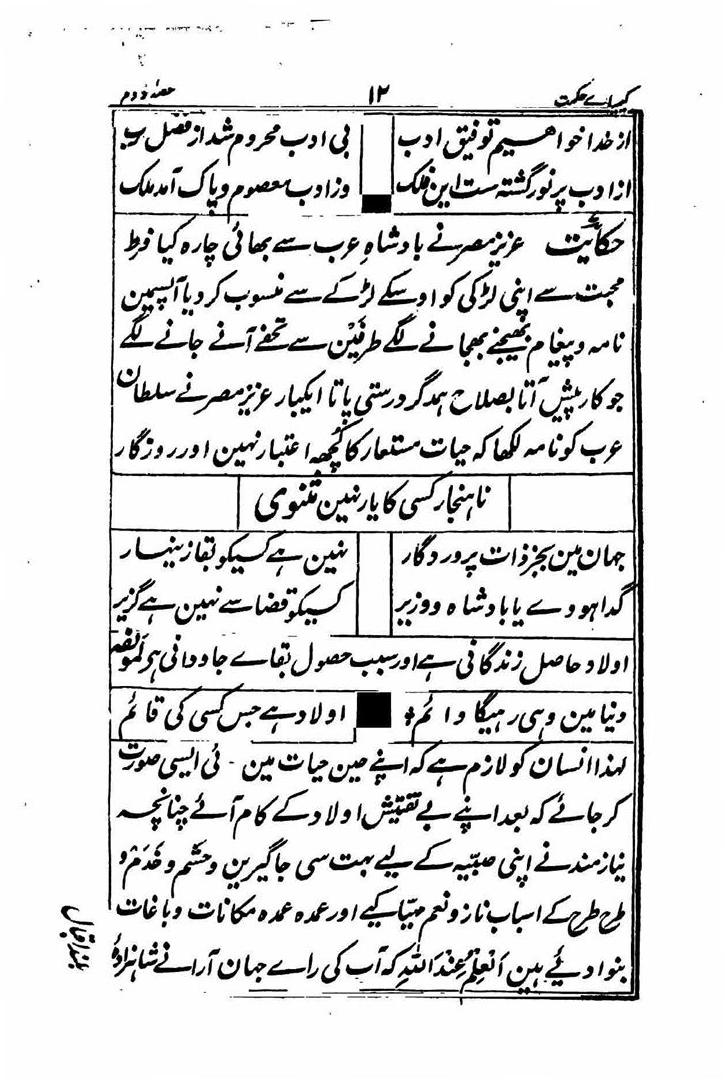 کیمیاے حکمت ۱۲ حصۂ دوم
از خدا خواهیم توفیق ادب بی ادب محروم شد از فضل رب
از ادب پر نور گشته ست این فلک وز ادب معصوم و پاک آمد ملک
حکایت عزیز مصر نے بادشاہِ عرب سے بھائی چارہ کیا فرط
محبت سے اپنی لڑکی کو اوسکے لڑکے سے منسوب کر دیا آپسمین
نامہ و پیغام بھیجنے بھجانے لگے طرفَین سے تحفے آنے جانے لگے
جو کار پیش آتا بصلاح ہمدگر درستی پاتا ایکبار عزیز مصر نے سلطان
عرب کو نامہ لکھا کہ حیات مستعار کا کُچھہ اعتبار نہین اور روزگار
ناہنجار کسی کا یار نہین مثنوی
جہان مین بجز ذات پروردگار نہین ہے کسیکو بقا زینہار
گدا ہووے یا بادشاہ و وزیر کسیکو قضا سے نہین ہے گزیر
اولاد حاصل زندگانی ہے اور سبب حصول بقاے جاودانی ہر لمولفہ
دنیا مین وہی رہیگا دائم اولاد ہے جس کسی کی قائم
لہذا انسان کو لازم ہے کہ اپنے حین حیات مین ئی ایسی صورت
کر جائے کہ بعد اپنے بے تفتیش اولاد کے کام آئے چنانچہ
نیازمند نے اپنی صبیّہ کے لیے بہت سی جاگیرین و حشم و خَدَم و
طرح طرح کے اسباب ناز و نعم مہیا کیے اور عمدہ عمدہ مکانات و باغات
بنوا دیئے ہین اَلْعِلْمُ عِنْدَ اللهِ کہ آپ کی راے جہان آرا نے شاہزادۂ
بلند اقبال